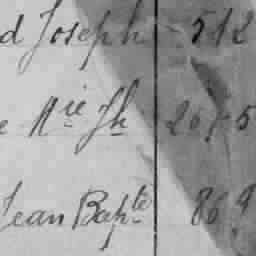 d Joseph 512
e Mie Jh 265
Jean Bapte 869